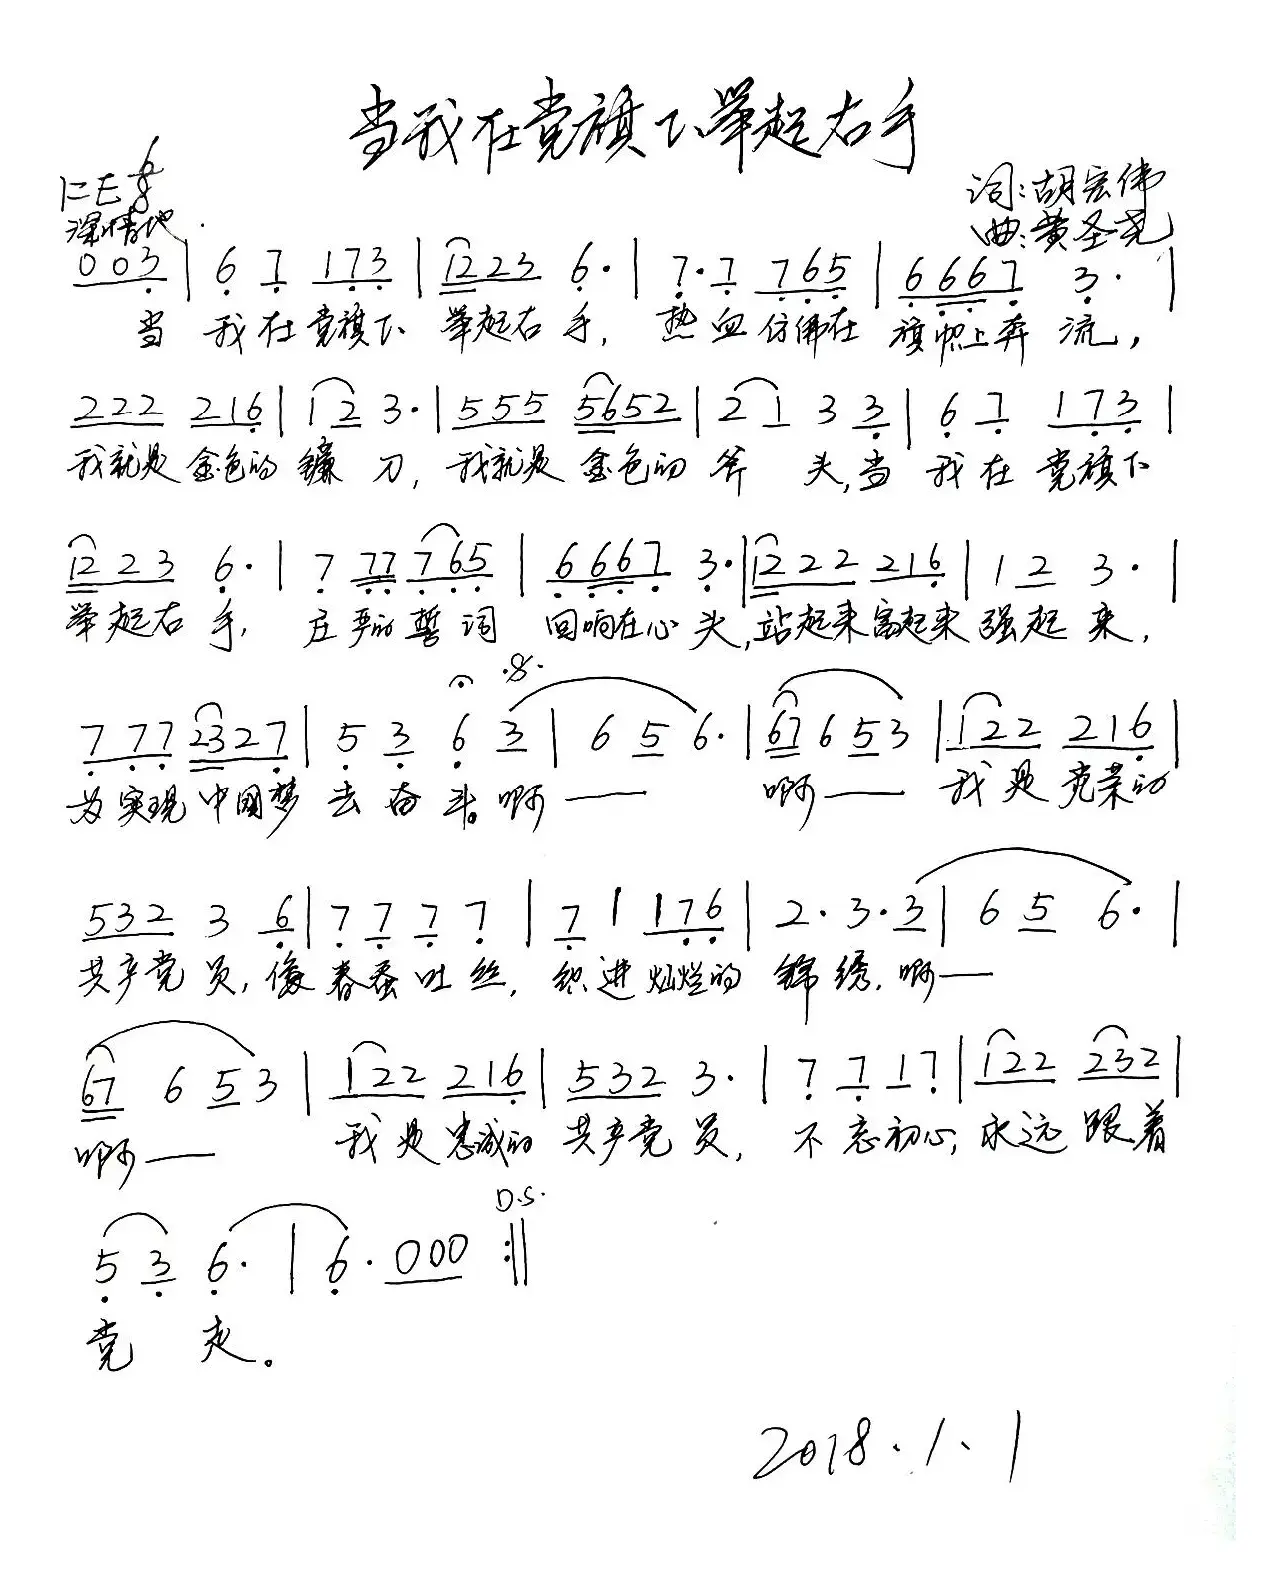 当我在党旗下举起右手
1=E 6/8
词:胡宏伟
深情地
曲:黄圣尧
003 | 6 7 173 | 1223 6· | 7·7 765 | 6667 3· |
当 我在党旗下 举起右手, 热血仿佛在 旗帜上奔流,
222 216 | 12 3· | 555 5652 | 21 3 3 | 6 7 173 |
我就是金色的镰刀, 我就是金色的斧头,当 我在党旗下
1223 6· | 7 77 765 | 6667 3· | 1222 216 | 12 3· |
举起右手, 庄严的誓词 回响在心头,站起来富起来强起来,
777 2327 | 5 3 6 3 | 6 5 6· | 67 6 5 3 | 122 216 |
为实现中国梦去奋斗。啊—— 啊—— 我是光荣的
532 3 6 | 7 7 7 7 | 7 1 176 | 2·3·3 | 6 5 6· |
共产党员,像春蚕吐丝, 织进灿烂的锦绣.啊——
67 6 5 3 | 122 216 | 532 3· | 7 7 17 | 122 232 |
啊—— 我是忠诚的共产党员, 不忘初心,永远跟着
D.S.
5 3 6· | 6· 000 :||
党走。
2018.1.1